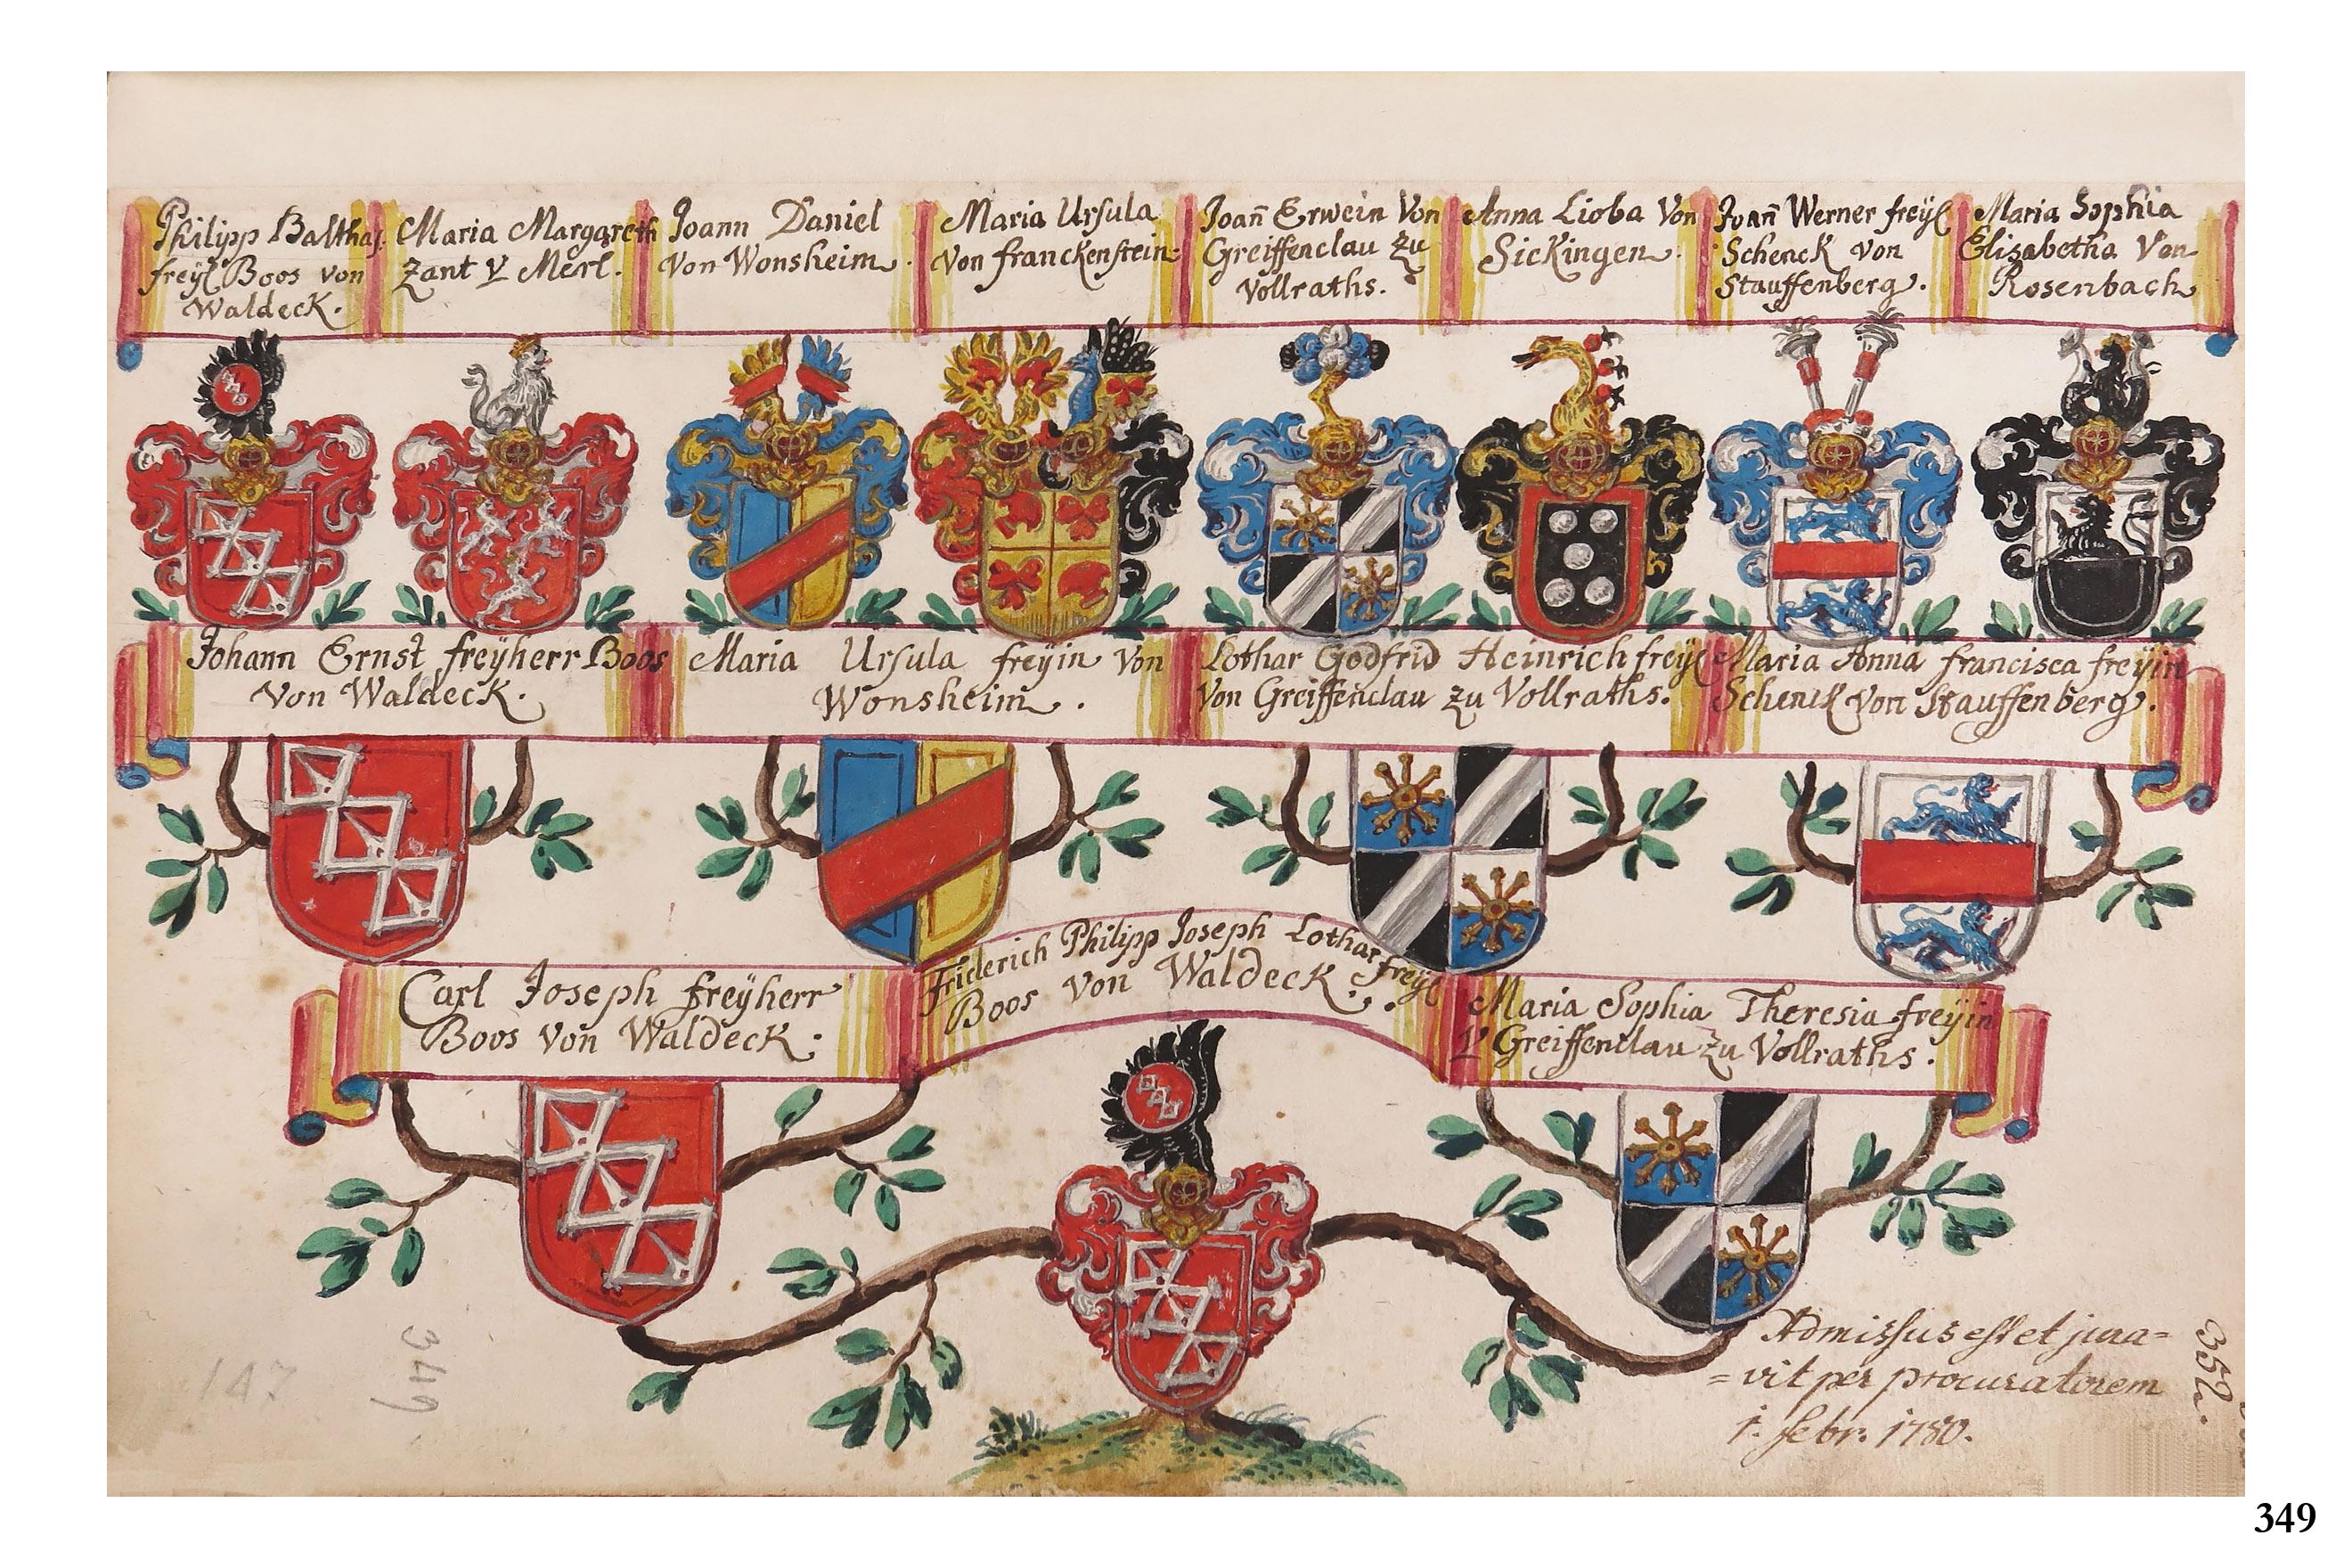 Philipp Balthas.
freyl Boos von
Waldeck.
Maria Margareth
Zant V Merl.
Joann Daniel
Von Wonsheim.
Maria Ursula
Von franckenstein:
Joañ Erwein Von
Greiffenclau zu
Vollraths.
Anna Lioba Von
Sickingen.
Joañ Werner freyl
Schenck von
Stauffenberg.
Maria Sophia
Elisabetha Von
Rosenbach
Johann Ernst freyherr Boos
Von Waldeck.
Maria Ursula freyin Von
Wonsheim.
Lothar Godfrid Heinrich freyl
Von Greiffenclau zu Vollraths.
Maria Anna francisca freyin
Schenck von Stauffenberg.
Carl Joseph freyherr
Boos von Waldeck.
Friderich Philipp Joseph Lothar freyl
Boos von Waldeck.
Maria Sophia Theresia freyin
V Greiffenclau zu Vollraths.
Admissus est et jura=
=vit per procuratorem
1. febr. 1780.
352.
147
349
349